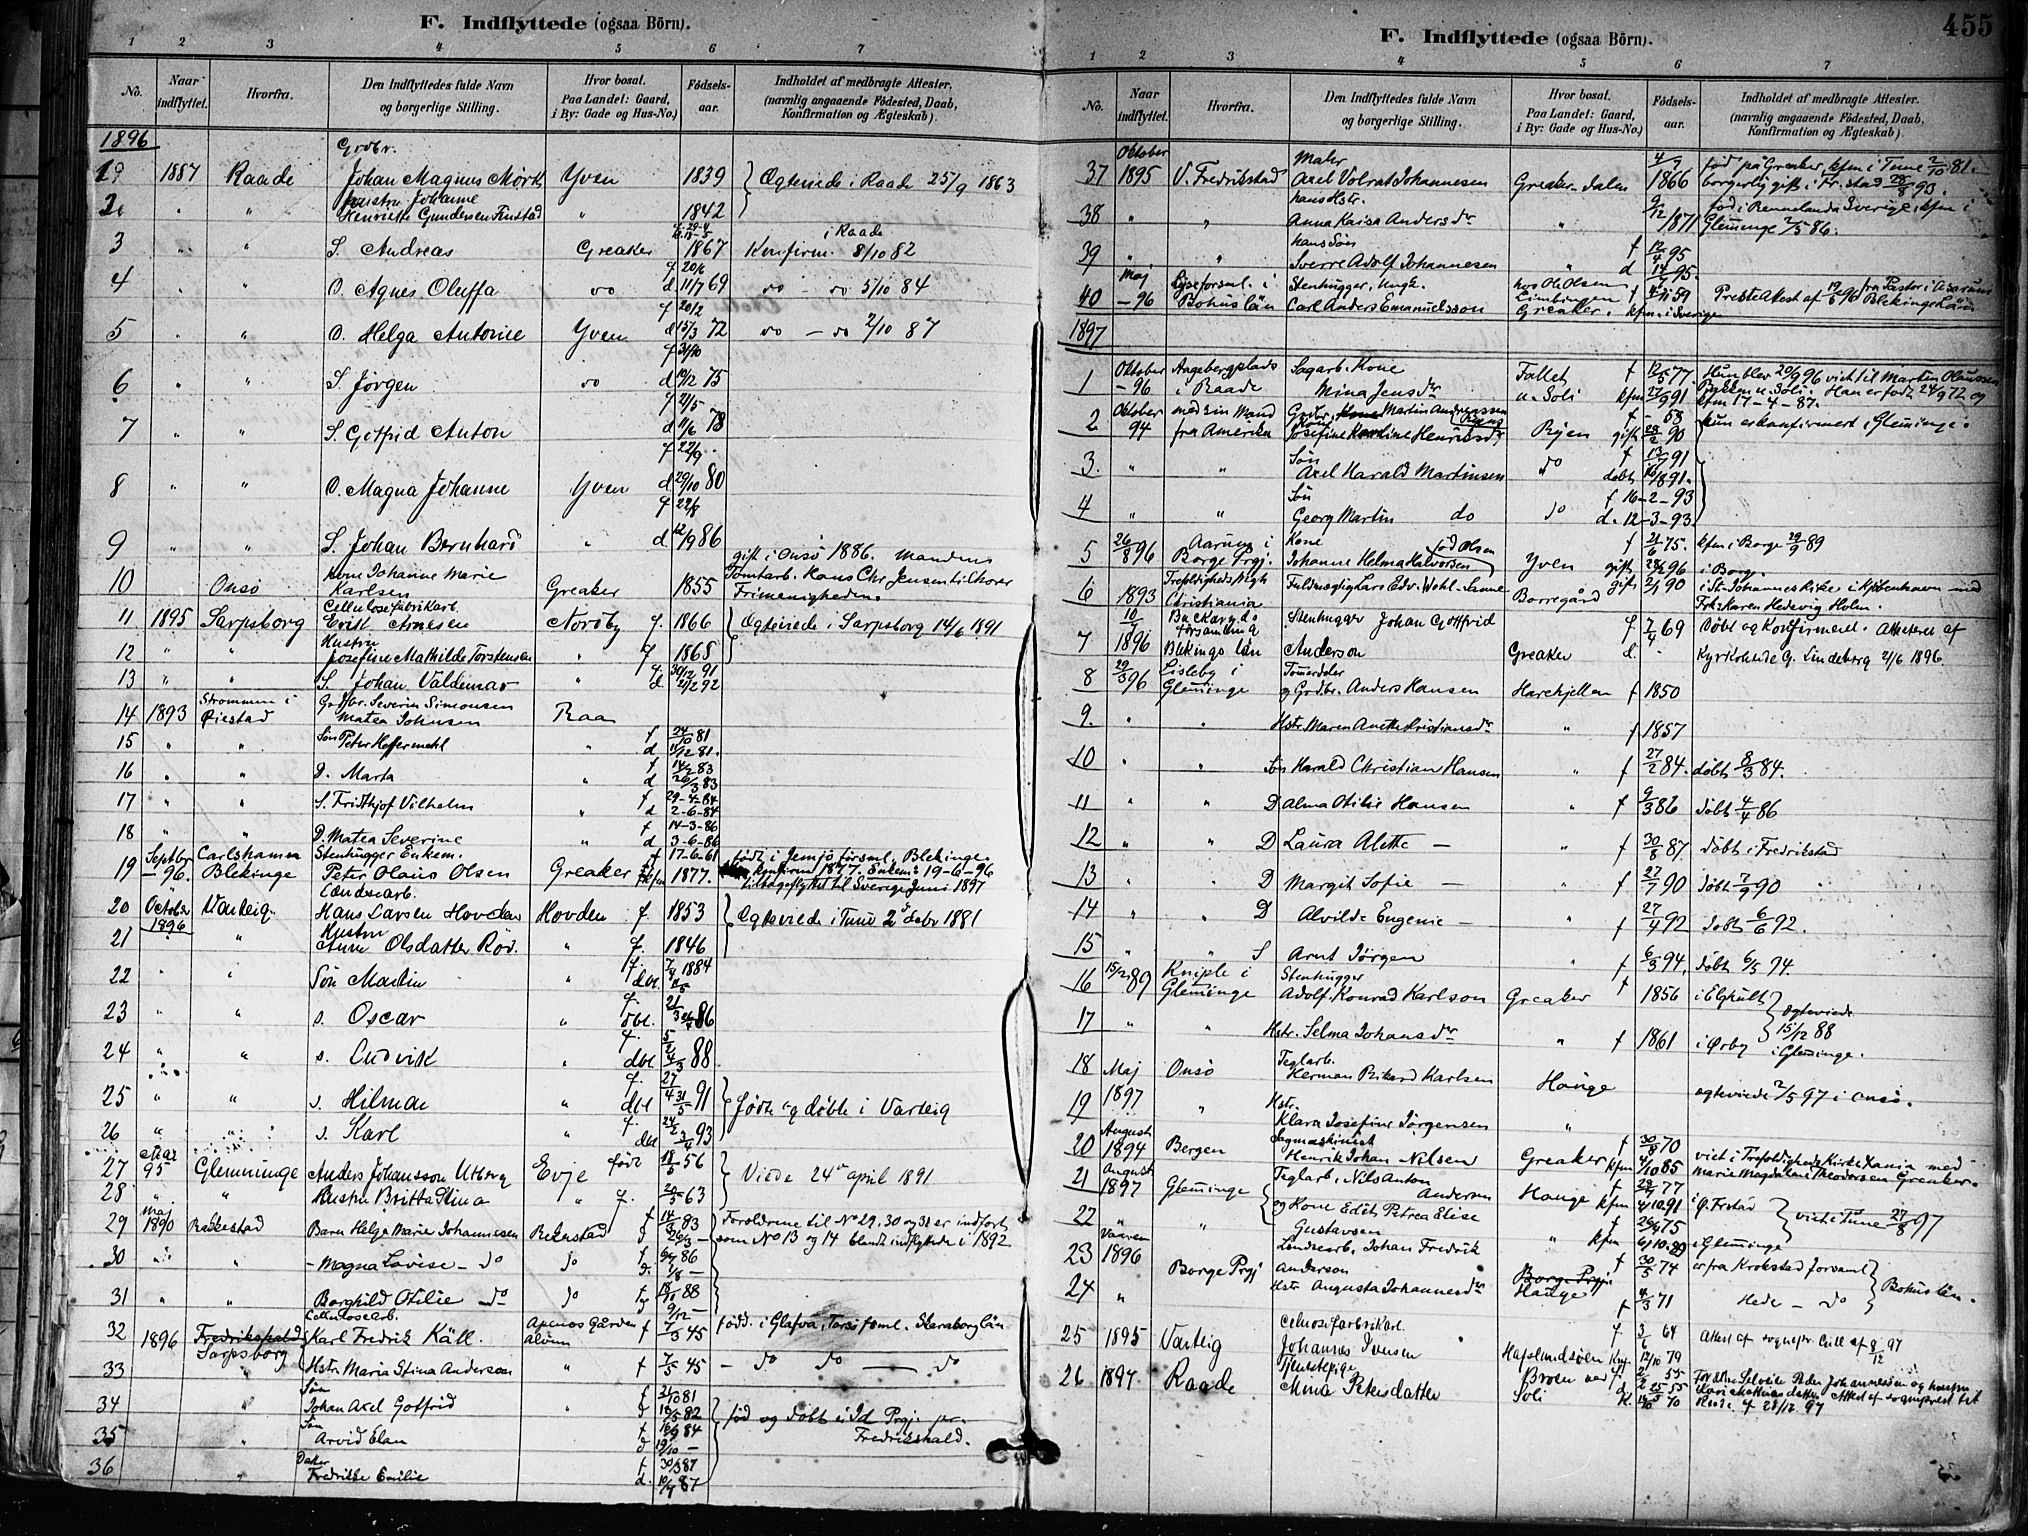 F. Indflyttede (ogsaa Börn).
1 2 3 4 5 6 7
No. Naar indflyttet. Hvorfra. Den Indflyttedes fulde Navn og borgerlige Stilling. Hvor bosat. Paa Landet: Gaard, i By: Gade og Hus-No.) Fødsels-aar. Indholdet af medbragte Attester, (navnlig angaaende Fødested, Daab, Konfirmation og Ægteskab).
1896
Grdbr.
1887 Raade Johan Magnus Yven 1839 Ægteviede i Raade 25/9 1863
2 " " Hustru Johanne
Henriette Gundersen " 1842
3 " " S. Andreas Greaker 1867 Konfirm. i Raade 8/10 82
4 " D. Agnes Oluffa do f 20/6 d 11/7 69 do - do 5/10 84
5 " " D. Helga Antonie Yven f 20/2 d 15/3 72 do - do 2/10 87
6 " " S. Jörgen do f 31/10 d 19/12 75
7 " " S. Gotfrid Anton f 21/5 d 11/6 78
8 " " D. Magna Johanne Yven f 22/9 d 29/10 80
9 " " S. Johan Bernhard " f 22/8 d 12/9 86
10 Onsö Kone Johanne Marie
Karlsen Greaker 1855 gift i Onsö 1886. Mandens
Tomtarb. Hans Chr Jensen tilhører
Frimenigheden.
11 1895 Sarpsborg Cellulosefabrikarb.
Arnesen Noröby f. 1866 Ægteviede i Sarpsborg 14/6 1891
12 " " Hustru
Josefine Mathilde Torstensen " f 1868
13 " " S. Johan Valdemar " f. 30/12 91 d. 21/2 92
14 1893 Strömmen i
Öiestad Grdbr. Severin Simonsen
Matea Johnsen Raa
15 " " Søn Peter Heffermehl " f 24/10 81 d 11/12 81.
16 " " D. Marta " f 14/2 83 d 26/3 83
17 " " S. Fridthjof Vilhelm " f 29-4-84 d 2-6-84
18 " " D. Matea Severine " f 14-3-86 d 3-6-86
19 Septbr
-96. Carlshamn
Blekinge Stenhugger Enkem.
Peter Olaus Olsen Greaker f 17-6-61 kfm 1877. født i Jemjö förs ml. Blekinge.
konfirm 1877. Enkem: 19-6-96
tilbageflyttet til Sverige Juni 1897
20 October
1896 Varteig. Landsarb.
Hans Larsen Hovden Hovden f. 1853 Ægteviede i Tune 2 debr 1881
21 " Hustru
Anne Olsdatter Röd. " f. 1846
22 " " Søn Martin " f. 7/4 1884 dbt.
23 " " s. Oscar " f. 21/3 86 dbt.
24 " " s. Ludvik " f. 5/2 dbt 4/3 88
25 " " s. Hilmar " f. 27/4 dbt 31/5 91 Fødte og döbte i Varteig
26 " " s. Karl " f. 24/2 dbt 3/4 93
27 Mai
95 Glemminge Anders Johansson Utberg Evje født 18/5 56 Viede 24de april 1891
28 " " Hustru Britta Stina " f. 20/5 63
29 Maj
1890 Rakkestad Barn Helga Marie Johannesen Rekustad f 14/3 83 d 26/3 - Forældrene til No 29. 30 og 31 er indført
som No 13 og 14 blandt indflyttede i 1892
30 " " - Magna Lovise - do do f 6/7 86 d. 1/8 -
31 " " Borghild Otilie do do f 18/11 88 d 9/12 -
32 1896 Fredrikshald
Sarpsborg Cellulosearb.
Karl Fredrik Käll. Apenes Gården
alvim f 7/3 45 född. i Glafva, Torsö fsml. Skaraborg län
33 Hstr. Maria Stina Anderson " f 7/5 45 - do do - do
34 " Søn
Johan Axel Gotfrid " f 24/10 81 d 19/3 82 fød og døbt i Id Prgj. pr.
Fredrikshald.
35 " Søn
Arvid Elam " f 16/9 84 d 19/10 -
36 " Datter
Fredrikke Emilie f 30/3 87 d. 10/4 87
F. Indflyttede (ogsaa Börn). 455
1 2 3 4 5 6 7
No. Naar indflyttet. Hvorfra. Den Indflyttedes fulde Navn og borgerlige Stilling. Hvor bosat. Paa Landet: Gaard, i By: Gade og Hus-No.) Fødsels-aar. Indholdet af medbragte Attester. (navnlig angaaende Fødested, Daab, Konfirmation og Ægteskab).
37 Oktober
1895 V. Fredrikstad Maler
Axel Volrat Johannesen Greaker-dalen 4/9 1866 fød på Greaker, kfm i Tune 2/10 81.
borgerlig gift i Fr.stad 28/8 90.
38 " " hans Hstr.
Anna Kaisa Andersdr " 9/12 1871 fød i Rennelanda Sverige, kfm i
Glemminge 2/5 86.
39 " " hans Søn
Sverre Adolf Johannesen " f 12/4 95 d 14/7 95.
40 Maj
-96 Lyseforsml. i
Bohuslän Stenhugger, Ungk.
Carl Anders Emanuelsson hos Ol. Olsen
Limbingen
Greaker. f 4/11 59 kfm. i Sverige Presteattest af 19/5 96 fra Pastor i Asarum
Blekings Län
1897
1 Oktober
-96 Aagebergplads
i Raade Sagarb. Kone
Mina Jensdr Fallet
u. Soli f 12/5 77. kfm 27/9 91 Hun blev 20/9 96 viet til Martin Olaussen
Bakken u. Soli. Han er født 24/9 72 og
kfm 17-4-87.
2 Oktober
94 med sin Mand
fra Amerika Grdbr. Martin Andreassen
Kone Josefine Henriksdr Ryen f - 68 gift 28/2 90 hun er konfirmert i Glemminge.
3. " " Søn
Axel Harald Martinsen do f 13/7 91 døbt 16/8 91.
4 " " Søn
Georg Martin do do f 16-2-93 d. 12-3-93
5 26/8 96 Aarum i
Borge Prgj. Kone
Johanne Helma Halvorsen
fød Olsen Yven f 21/6 75. gift 28/2 96 kfm i Borge 29/9 89
i Borge.
6 1893 Trefoldigheds Mgh
Christiania Fuldmægtig Lars Edv. Wohl-Sanne Borregård gift 2/1 90 i St. Johannes Kirke i Kjøbenhavn med
Frk. Karen Hedevig Holm.
7 10/7
1896 Backaryds
församling
Blekings län Stenhugger Johan Gottfrid
Anderson Greaker f. 7/9 69 d. - Døbt og Konfirmeret. Attesteret af
Kyrkoherde G. Lindeborg 2/6 1896
8 29/3 96 Lisleby i
Glemminge Tømmerdeler
og Grdbr. Anders Hansen Harekjellen f 1850
9. " " Hstr. Maren Anette Kristiansdr " f 1857
10 " " Søn Harald Christian Hansen " f 27/2 84. døbt 8/3 84.
11 " " D Alma Otilie Hansen " f 9/3 86 døbt 4/4 86
12 " " D Laura Alette - " f 30/8 87 døbt i Fredrikstad
13 " " D Margit Sofie - " f 27/7 90 døbt 7/9 90
14 " " D Alvilde Eugenie - " f 27/4 92 døbt 6/6 92.
15 " " S Arnt Jörgen " f 6/3 94, døbt 6/5 94.
16 15/12 89 Kniple i
Glemminge Stenhugger
Adolf Konrad Karlson Greaker f 1856 i Elghult
17 " " Hstr. Selma Johansdr " f 1861 i Ørby ægteviede
15/12 88
i Glemminge.
18 Maj
1897 Onsö Teglarb.
Herman Rikard Karlsen Hauge ægteviede 2/5 97 i Onsö.
19 " Hstr.
Klara Josefine Jörgensen "
20 August
1894 Bergen Sagmaskinist
Henrik Johan Nilsen Greaker f 30/8 70 kfm 4/10 85 viet i Trefoldigheds Kirke Xania med
Marie Magdalene Theodorsen Greaker.
21 August
1897 Glemminge Teglarb. Nils Anton
Andersen Hauge f 28/7 77 kfm 4/10 91 i Ø. Frstad
22 " " og Kone Edit Petrea Elise
Gustavsen " f 26/4 75 kfm 6/10 89 i Glemminge viet i Tune 27/8 97
23 Vaaren
1896 Borge Prgj Landsarb. Johan Fredrik
Anderson Borge Prgj
Hauge f 30/5 74 er fra Krokstad Forsaml
24 " Hstr. Augusta Johannesdr f 4/3 71 Hede - do Bohus län.
25 1895 Varteig Celulosefabrikarb.
Johannes Iversen Hafslundsöen f 3/6 64 Knf. 12/10 79 Attest af sognepr. Lull af 8/12 97
26 1897 Raade Tjenestepige
Mina Petersdatter Broen ved
Soli Forældre Selveier Peder Johannesen og hustru
Attest af sogneprest til
Raade af 28/12 97